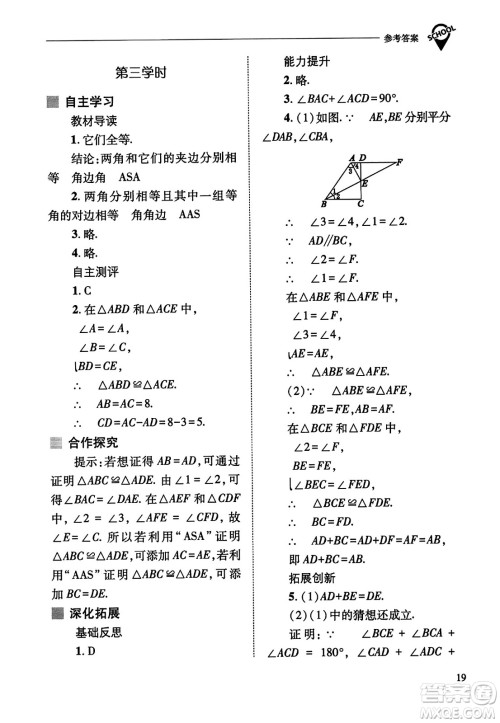 参考答案
SCHOOL
第三学时
自主学习
教材导读
1. 它们全等.
结论：两角和它们的夹边分别相
等 角边角 ASA
2. 两角分别相等且其中一组等
角的对边相等 角角边 AAS
3. 略.
4. 略.
自主测评
1. C
2. 在△ABD 和△ACE 中,
∠A=∠A,
∠B=∠C,
BD=CE,
∴ △ABD≌△ACE.
∴ AB=AC=8.
∴ CD=AC-AD=8-3=5.
合作探究
提示：若想证得 AB=AD,可通过
证明△ABC≌△ADE. 由∠2=∠3,可
证得∠C=∠E. 在△AEF 和△CDF
中,∠2=∠3,∠AFE=∠CFD,故
∠E=∠C. 所以若利用“ASA”证明
△ABC≌△ADE,可添加 AC=AE.若利
用“AAS”证明△ABC≌△ADE,可添加
BC=DE.
深化拓展
基础反思
1. D
能力提升
2. 略.
3. ∠BAC+∠ACD=90°.
4. (1)如图. ∵ AE,BE 分别平分
∠DAB,∠CBA,
A D F
3 4
E
1
2
B C
∴ ∠3=∠4,∠1=∠2.
∵ AD∥BC,
∴ ∠2=∠F.
∴ ∠1=∠F.
在△ABE 和△AFE 中,
∠1=∠F,
∠3=∠4,
AE=AE,
∴ △ABE≌△AFE.
(2)∵ △ABE≌△AFE,
∴ BE=FE.
在△BCE 和△FDE 中,
∠2=∠F,
BE=FE,
∠BEC=∠FED,
∴ △BCE≌△FDE.
∴ BC=FD.
∴ AD+BC=AD+FD=AF=AB.
即 AD+BC=AB.
拓展创新
5. (1)AD+AB=BE.
(2)(1)中的猜想还成立.
证明：∵ ∠BCE + ∠BCA +
∠ACD = 180°, ∠BCA + ∠A +
19
答案圈
MXQE.COM